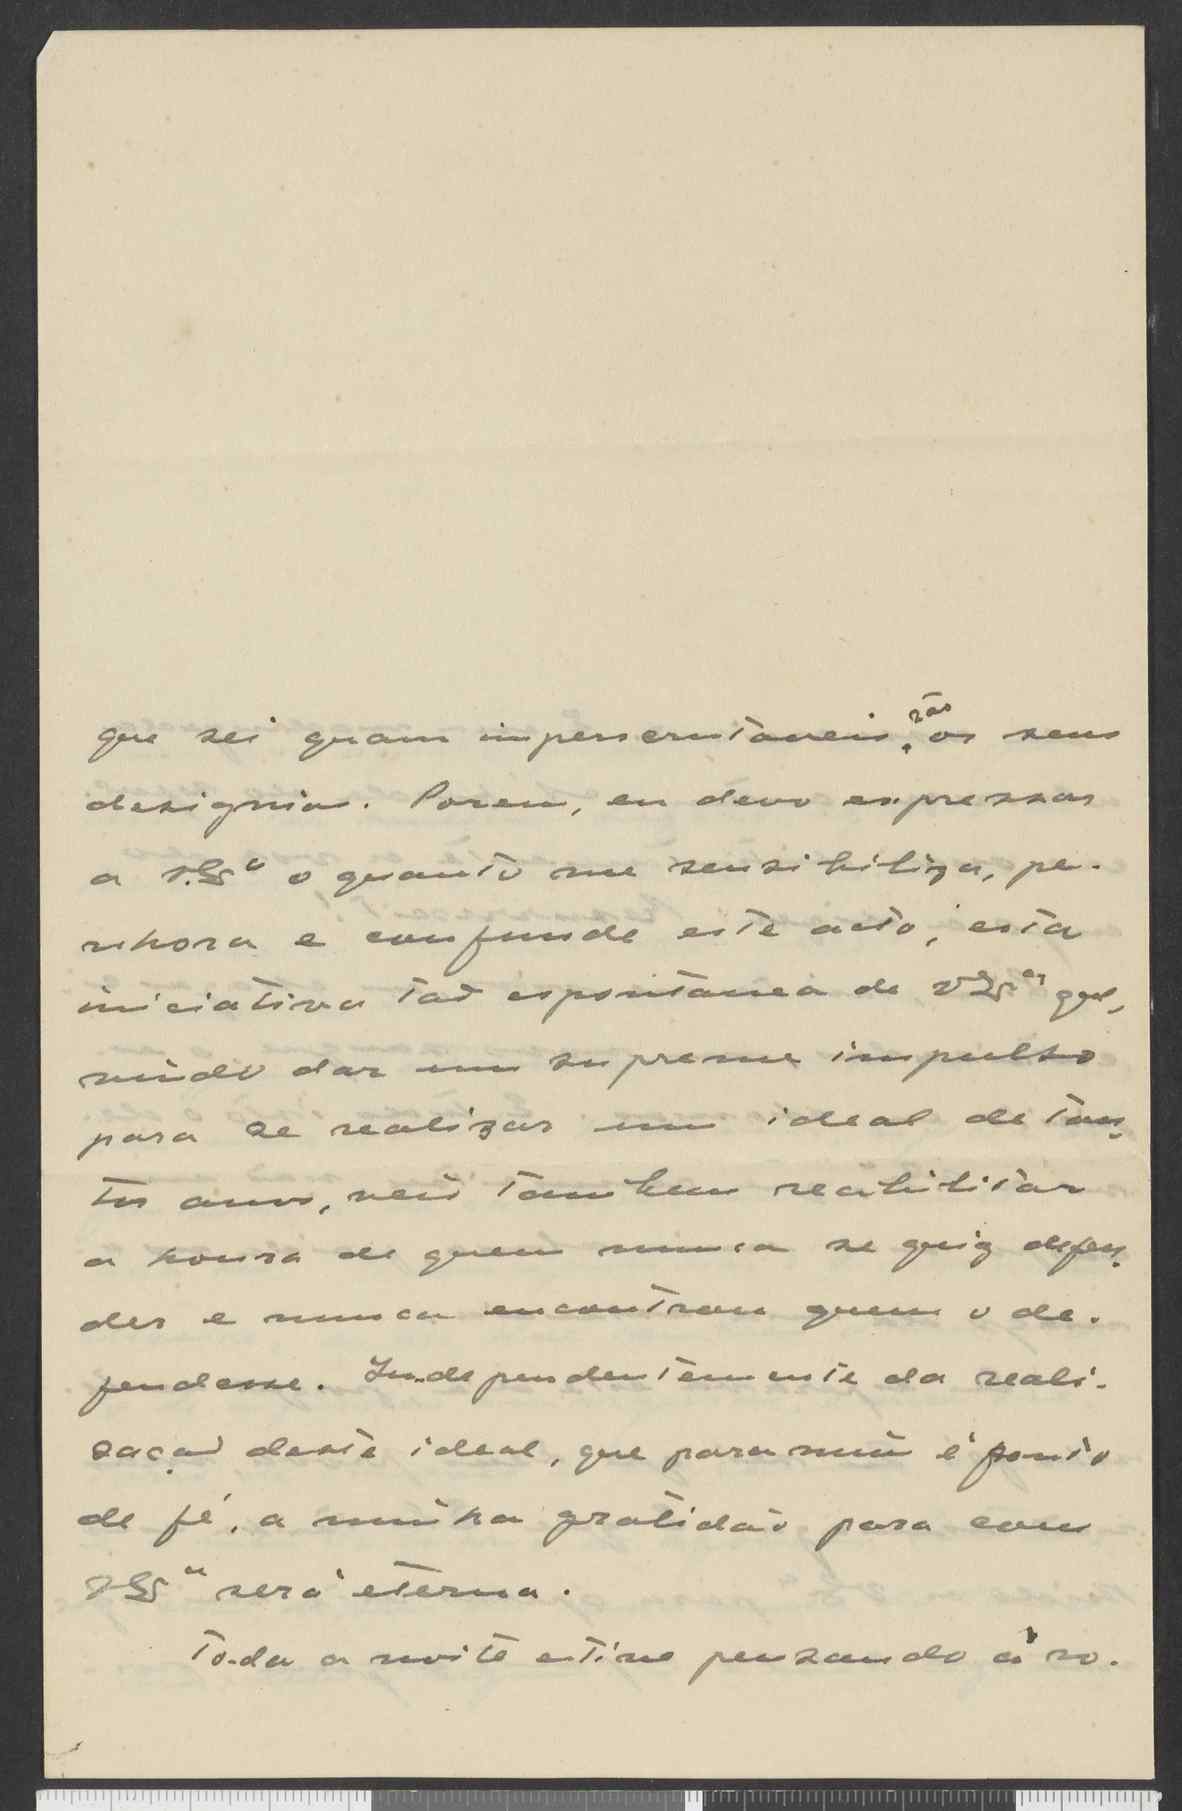 que sei quam imperscrutaveis são os seus
designios. Porem, eu devo expressar
a V. Ex.ª o quanto me sensibiliza, pe-
nhora e confunde este acto, esta
iniciativa tão espontanea de V. Ex.ª que,
vindo dar um supremo impulso
para se realizar um ideal de tan-
tos anos, veio tambem reabilitar
a honra de quem nunca se quiz defen-
der e nunca encontrou quem o de-
fendesse. Independentemente da reali-
saçaõ deste ideal, que para mim é ponto
de fé, a minha gratidão para com
V. Ex.ª será eterna.
Toda a noite estive pensando á ro-